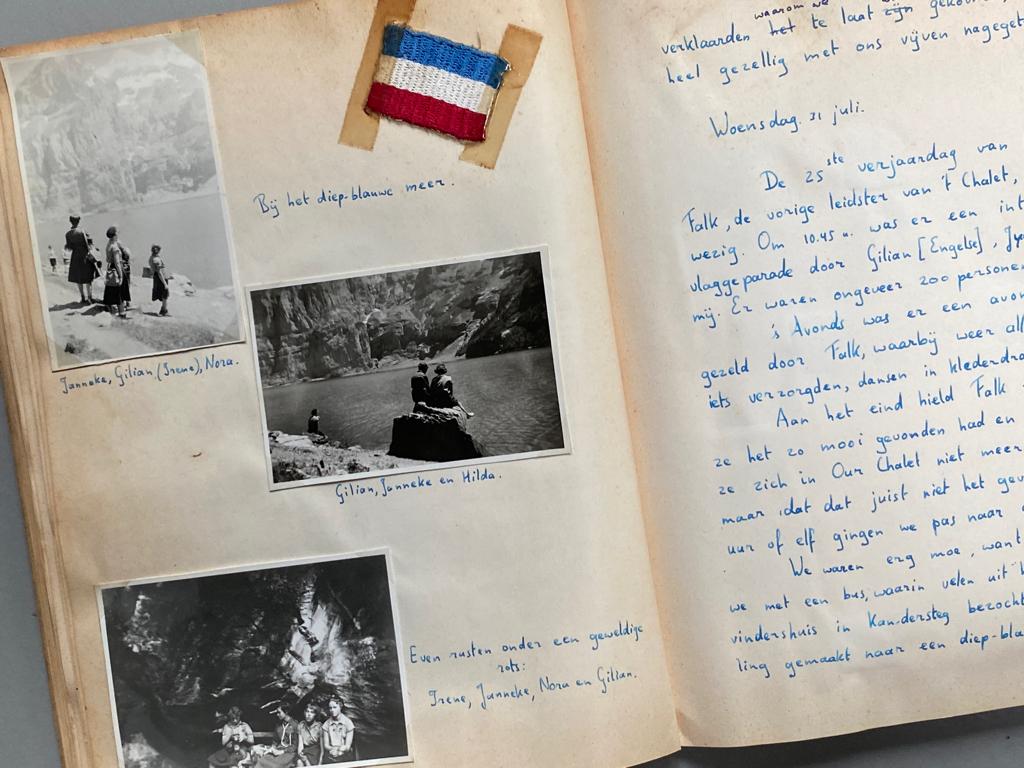 Bij het diep-blauwe meer.
Janneke, Gilian, (Irene), Nora.
Gilian, Janneke en Hilda.
Even rusten onder een geweldige
rots:
Irene, Janneke, Nora en Gilian.
waarom we
verklaarden het te laat zijn
heel gezellig met ons vijven
Woensdag. 31 juli.
De 25ste verjaardag van
Falk, de vorige leidster van 't Chalet,
wezig. Om 10.45 u. was er een
vlaggeparade door Gilian [Engelse],
mij. Er waren ongeveer 200 personen
's Avonds was er een
gezeld door Falk, waarbij weer
iets verzorgden, dansen in
Aan het eind hield Falk
ze het zo mooi gevonden had en
ze zich in Our Chalet niet meer
maar dat dat juist niet het
uur of elf gingen we pas naar
We waren erg moe, want
we met een bus, waarin velen uit
vindershuis in Kandersteg
ling gemaakt naar een